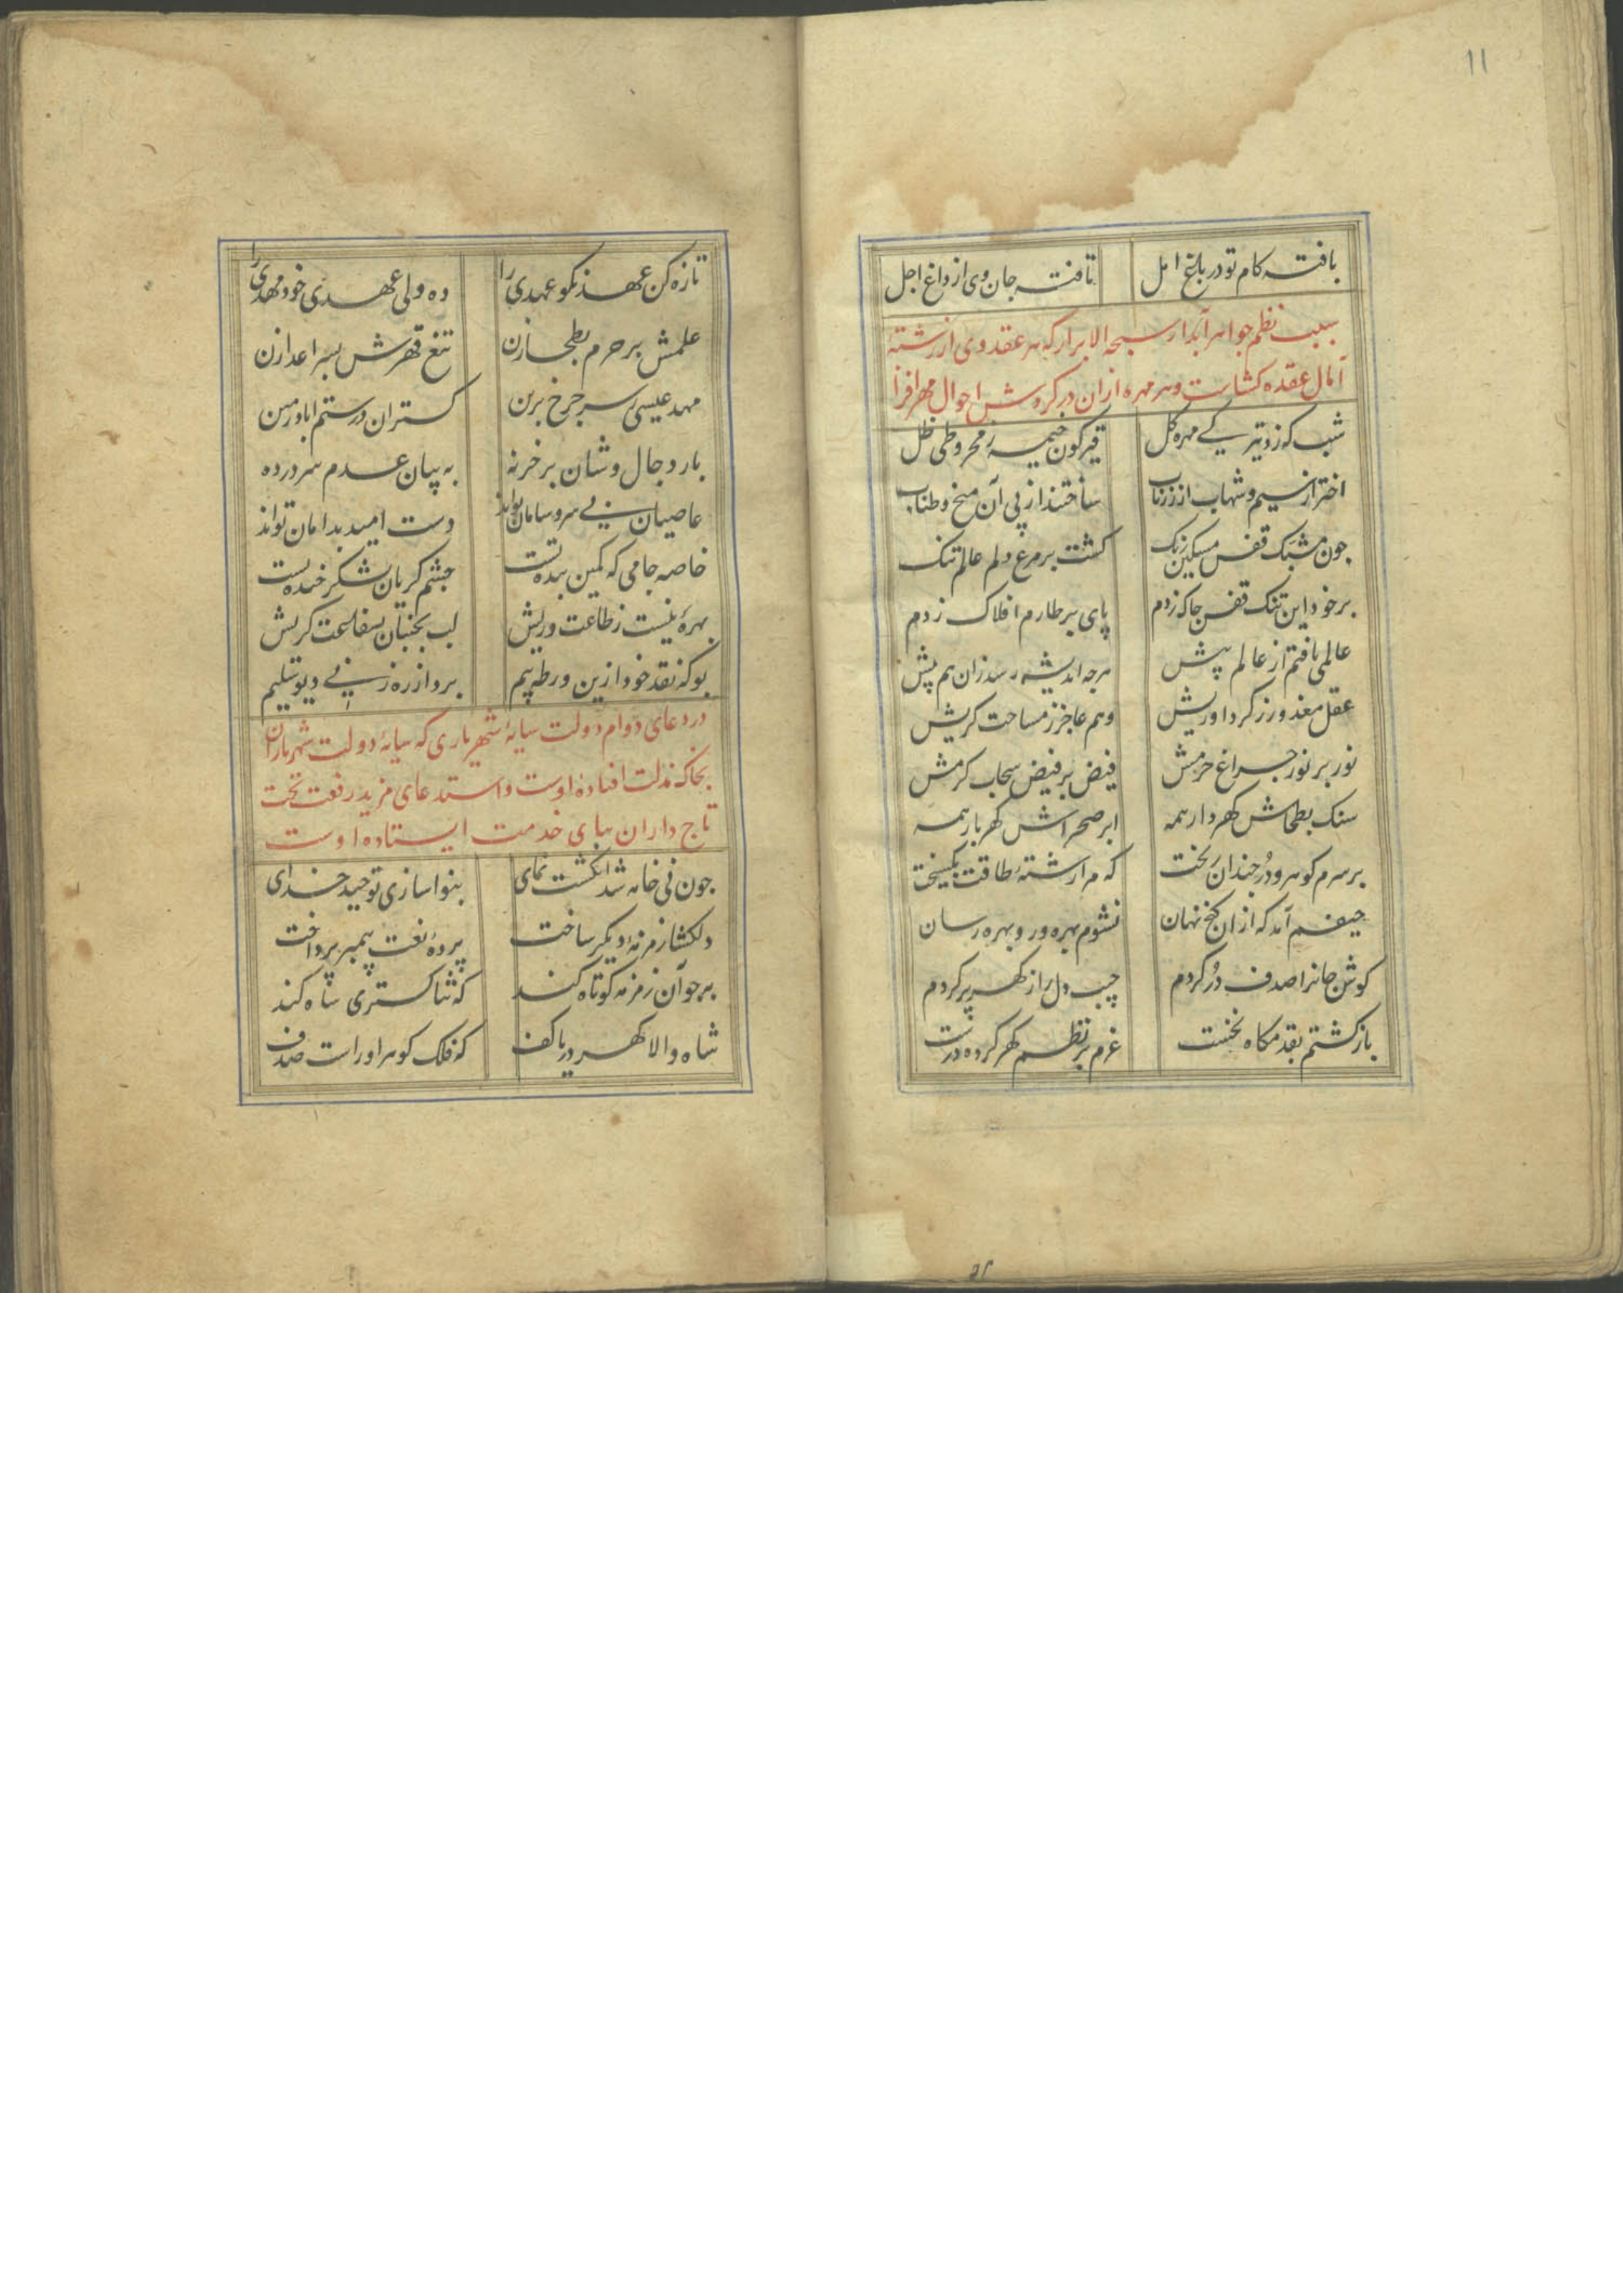 11
یافته کام تو در باغ امل تافته جان وی از داغ اجل
سبب نظم جواهر آبدار سبحة الابرار که هر عقد وی از رشتهٔ
آمال عقده کشاست و هر مهره ازان در کردش احوال مهر افزا
شب که زد تیرکی مهره کل قیرکون خیمه ز مخروطی ظل
اختر از سیم و شهاب از زر ناب ساختند از پی آن میخ و طناب
چون مشبک قفس مسکین رنک کشت بر مرغ دلم عالم تنک
بر خود این تنک قفس چاک زدم پای بر طارم افلاک زدم
عالمی یافتم از عالم پیش هرچه اندیشه رسد زان هم پیش
عقل معذور ز کرد اوریش وهم عاجز ز مساحت کریش
نور بر نور چراغ حرمش فیض بر فیض سحاب کرمش
سنک بطحاش کهردار همه ابر صحراش کهربار همه
بر سرم کوهر و دُر چندان ریخت که مرا رشتهٔ طاقت بکسیخت
حیفم آمد که از ان کنج نهان نشوم بهره ور و بهره رسان
کوش جانرا صدف دُر کردم جیب دل را ز کهر پر کردم
باز کشتم بقدمکاه نخست عزم بر نظم کهر کرده درست
تازه کن عهد نکو عهدی را ده ولی عهدی خود مهدی را
علمش بر حرم بطحا زن تیغ قهرش بسر اعدا زن
مهد عیسی ز سر چرخ برین کستران در ستم اباد زمین
بار دجال وشان بر خر نه به بیابان عدم سر در ده
عاصیان بی سر و سامان تواند دست امید بدامان تواند
خاصه جامی که کمین بنده تست چشم کریان شکر خنده تست
بهرهٔ نیست ز طاعت وریش لب بجنبان بشفاعت کریش
بو که نقد خود ازین ورطه بیم برد از ره زنی دیو سلیم
در دعای دوام دولت سایهٔ شهریاری که سایهٔ دولت شهریاران
بخاک مذلت افتاده اوست و استدعای مزید رفعت تخت
تاج داران بپای خدمت ایستاده اوست
چون نی خامه شد انکشت نمای بنوا سازی توحید خدای
دلکشا زمزمهٔ دیکر ساخت پردهٔ نعت پیمبر پرداخت
بر جو آن زمزمه کوتاه کند که ثنا کستری شاه کند
شاه والا کهر دریا کف که فلک کوهر اوراست صدف